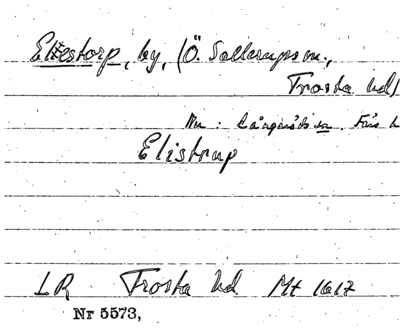 Elestorp, by, (Ö. Sallerups sn.,
Trosta hd)
Nu: Långaröds sn. Färs h
Elistrup
LR Frosta hd Mt 1617
Nr 5573,